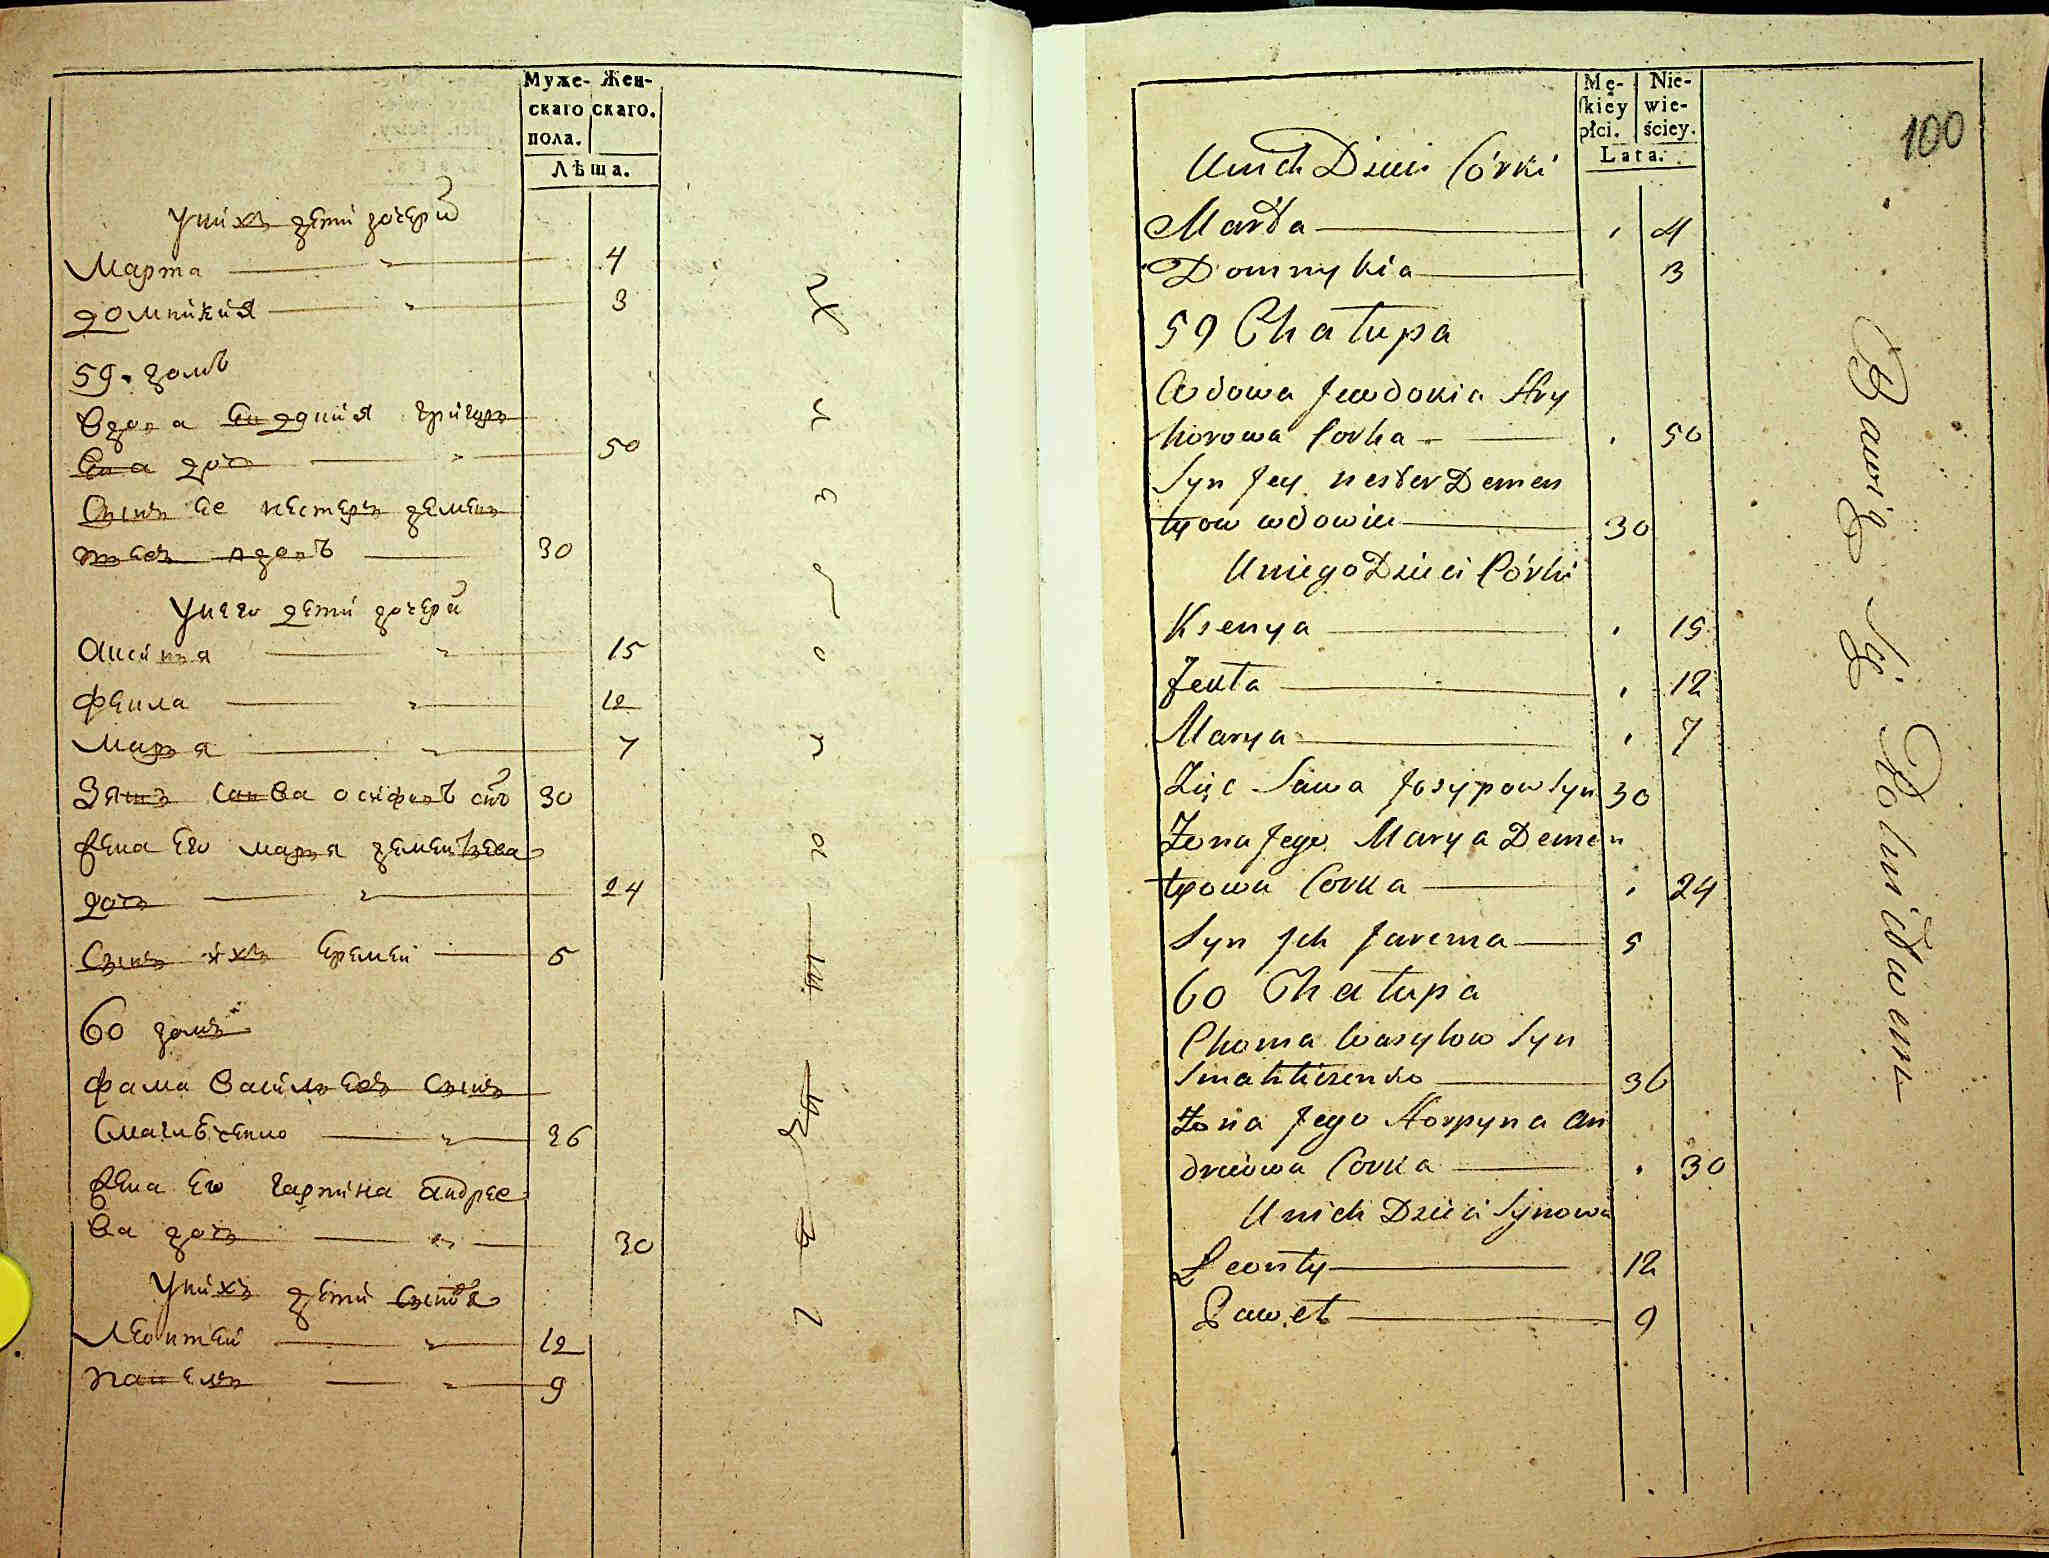 Муже-
скаго
пола.
Жен-
скаго.
Лѣта.
Унихъ дети дочери
Марта 4
Домникия 3
59. домъ
Вдова Евдокия Григор
ева дочь 50
Сынъ ее Нестеръ Демен
тьевъ вдовъ 30
Унего дети дочери
Аксиния 15
Фекла 12
Марья 7
Зять Савва Осифовъ снъ 30
Жена Его Марья Деменьтьева
дочь 24
Сынъ ихъ Еремей 5
60 домъ
Фама Васильевъ Сынъ
36
Жена Его Гарпина Андрее
ва дочь 30
Унихъ дети Сыновя
Леонтей 12
Павелъ 9
Mę-
skiéy
płci.
Nie-
wie-
ściey.
Lata.
100
Unich Dzieci Córki
Marta 4
Domnykia 3
59 Chałupa
Wdowa Jewdokia Hry
horowa Corka 50
Syn Jey Nester Demen
tyow wdowiec 30
Uniego Dzieci Córki
Ksenya 15
Jekła 12
Marya 7
Zięc Sawa Josypow Syn 30
Żona Jego Marya Demen
tyowa Corka 24
Syn Jch Jarema 5
60 Chałupa
Choma Wasylow Syn
36
Żona Jego Horpyna An
dreiowa Corka 30
Unich Dzieci Synowa
Leonty 12
Paweł 9
Bawią Się Rolnictwem